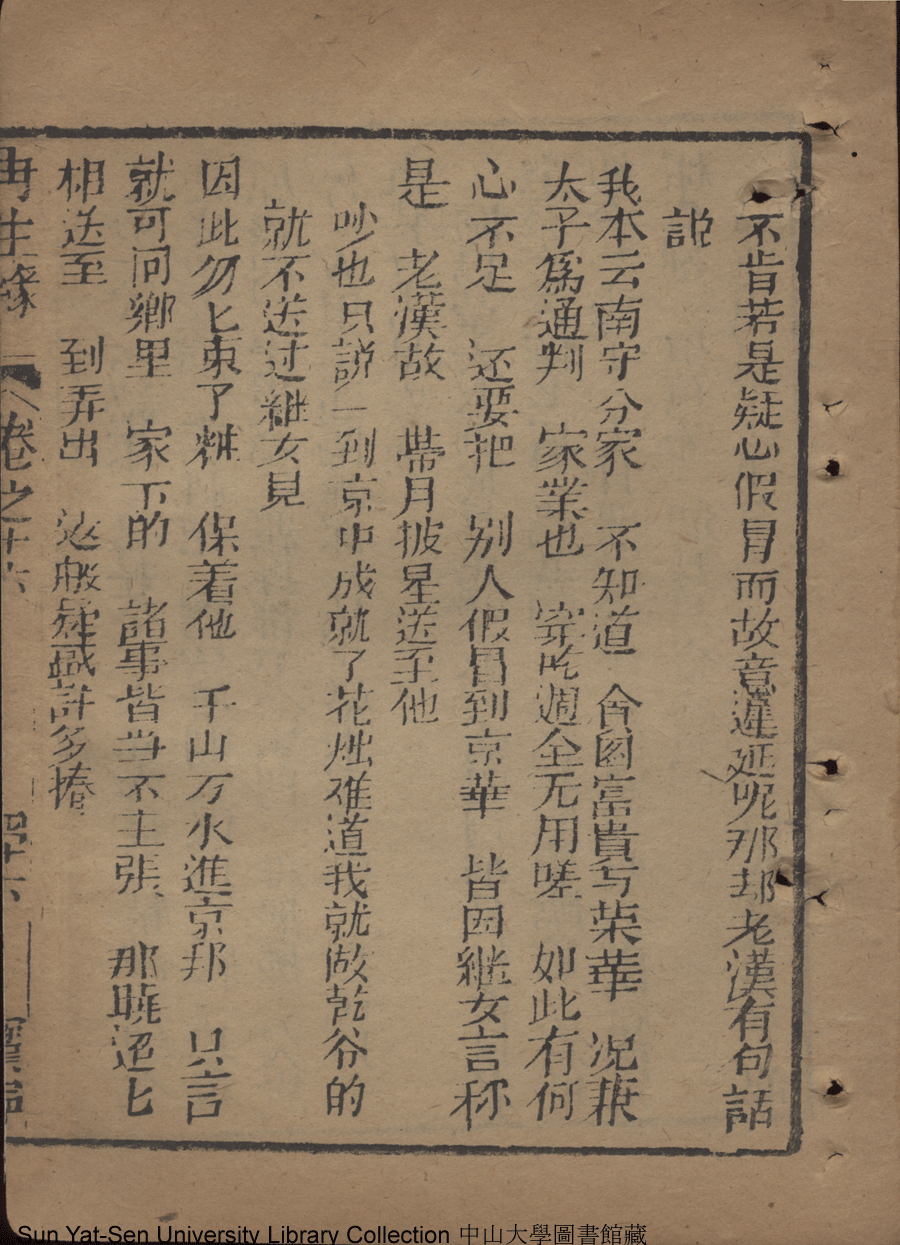 不肯若是疑心假冒而故意遲延呢那却老漢有句話
説
我本云南守分家　不知道　貪圖富貴与荣華　况兼
太子爲通判　家業也　穿吃週全无用嗟　如此有何
心不足　还要把　别人假冒到京華　皆因継女言称
是　老漢故　帶月披星送至他
吵也只説一到京中成就了花烛难道我就做乾爷的
就不送过継女見
因此勿匕束了粧　保着他　千山万水進京邦　只言
就可回鄉里　家下的　諸事皆当不主張　那曉迢匕
相送至　到弄出　这般疑惑許多捲
再生緣　卷之十六
Sun Yat-Sen University Library Collection 中山大學圖書館藏